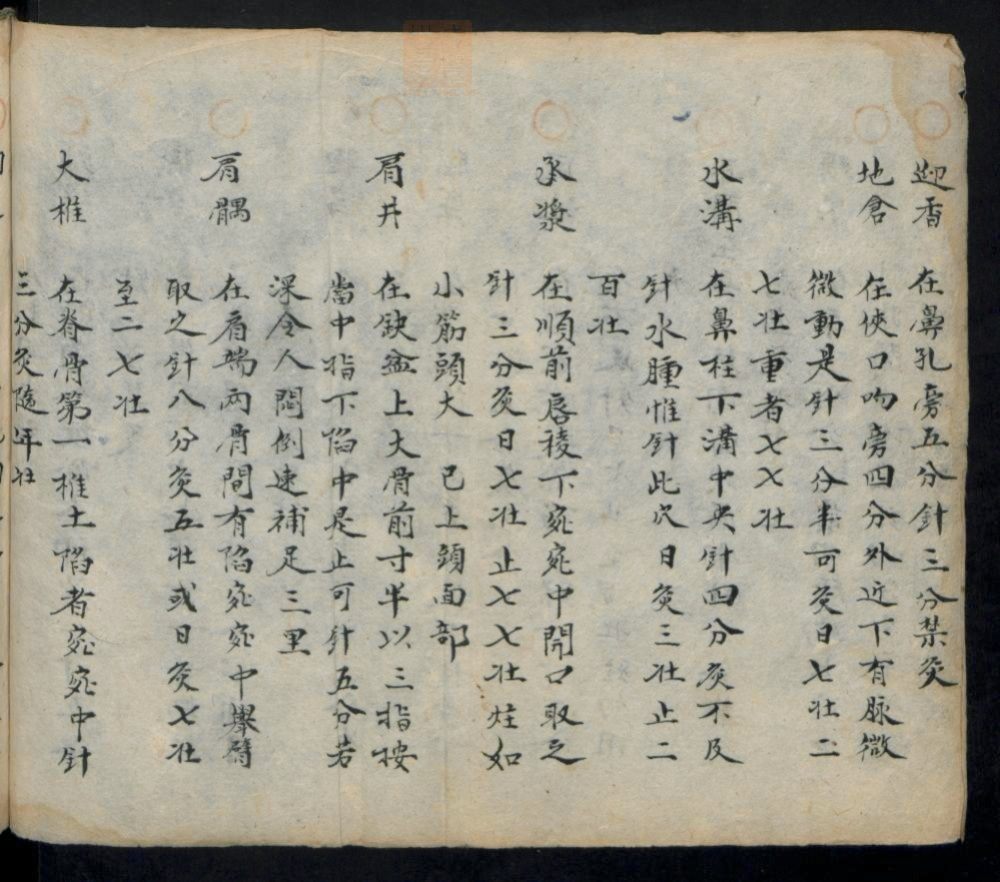 迎香 在鼻孔旁五分針三分禁灸
地倉 在俠口吻旁四分外近下有脉微
微動是針三分半可灸日七壯二
七壯重者七七壯
水溝 在鼻柱下溝中央針四分灸不及
針水腫惟針此穴日灸三壯止二
百壯
承漿 在順前唇稜下宛宛中開口取之
針三分灸日七壯止七七壯炷如
小筋頭大 已上頭面部
肩井 在缺盆上大骨前寸半以三指按
當中指下陷中是止可針五分若
深令人悶倒速補足三里
肩髃 在肩端兩骨間有陷宛宛中舉臂
取之針八分灸五壯或日灸七壯
至二七壯
大椎 在脊骨第一椎土陷者宛宛中針
三分灸隨年壯